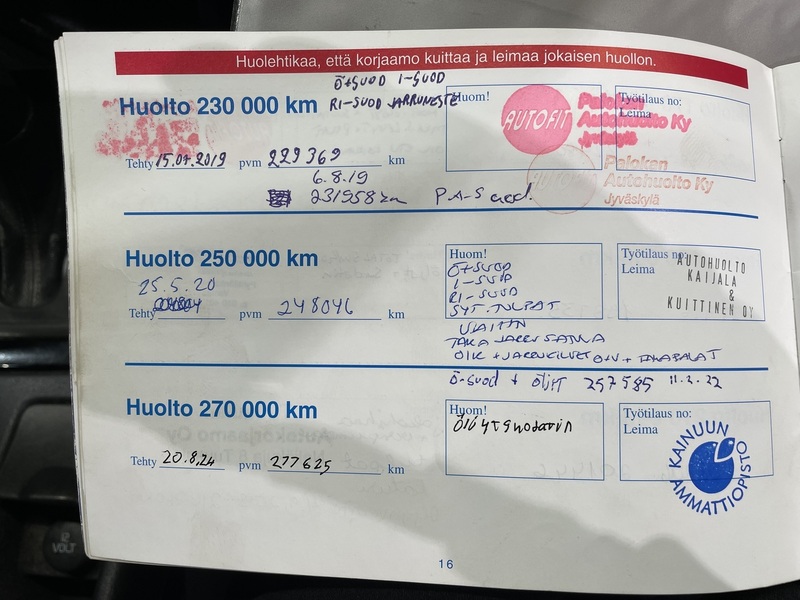 Huolehtikaa, että korjaamo kuittaa ja leimaa jokaisen huollon.
Ö+SUOD I-SUOD
Huolto 230 000 km RI-SUOD JARRUNESTE
Huom!
AUTOFIT
Palokan
Autohuolto Ky
Jyväskylä
Työtilaus no:
Leima
Tehty 15.07.2019 pvm 229369 km
6.8.19
231958 km P.A-Suod.
Palokan
Autohuolto Ky
Jyväskylä
Huolto 250 000 km
25.5.20
Tehty pvm 248046 km
Huom!
Ö+SUOD
I-SUOD
RI-SUOD
SYT.TULPAT
TAKA JARRUSATULA
Työtilaus no:
Leima
AUTOHUOLTO
KAIJALA
&
KUITTINEN OY
Ö-suod + Öljyt 257585 11.2.22
Huolto 270 000 km
Tehty 20.8.24 pvm 277625 km
Huom!
Öljyt suodatin
Työtilaus no:
Leima
KAINUUN
AMMATTIOPISTO
16
12
VOLT